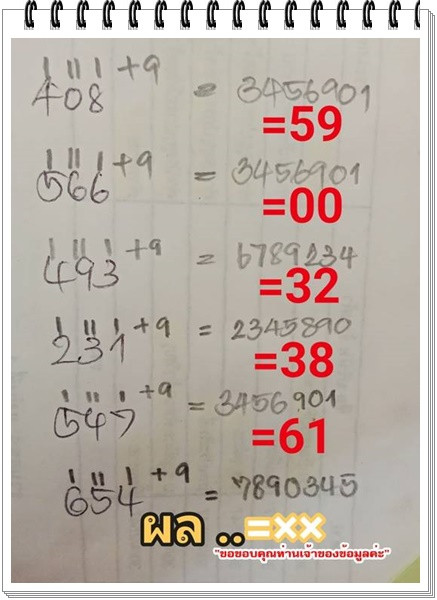 ı ıı ı +9
408 = 3456901
=59
ı ıı ı +9
566 = 3456901
=00
ı ıı ı +9
493 = 6789234
=32
ı ıı ı +9
231 = 2345890
=38
ı ıı ı +9
547 = 3456901
=61
ı ıı ı +9
654 = 7890345
ผล ..=xx
"ขอขอบคุณท่านเจ้าของข้อมูลค่ะ"